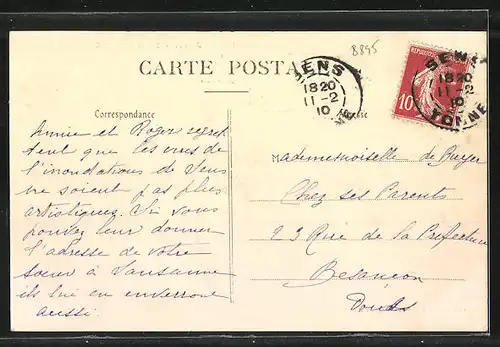 8895
CARTE POSTALE
SENS
1820
11-2
10
SENS
1820
11-2
10
YONNE
10
Correspondance
Adresse
Annie et Roger regret
tent que les vues de
l'inondations de Sens
ne soient pas plus
artistiques. Si vous
pouvez leur donner
l'adresse de votre
soeur à Lausanne
ils lui en enverront
aussi.
Mademoiselle de
Chez ses Parents
23 Rue de la Préfecture
Besançon
Doubs